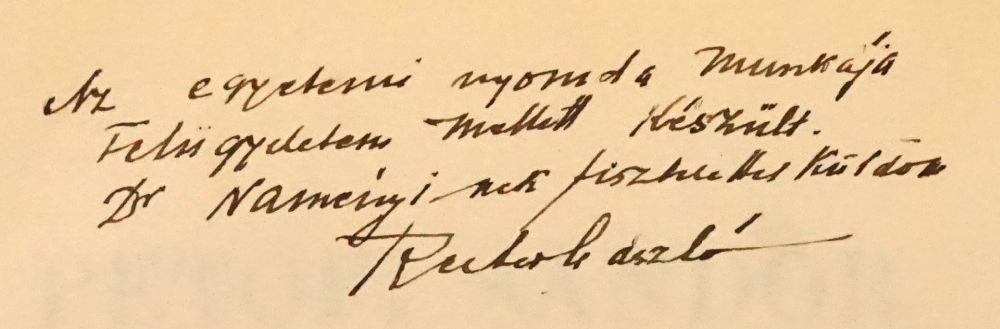 Az egyetemi nyomda munkája
Felügyeletem mellett készült.
Dr Naményi-nek tisztelettel küldöm
Reiter László